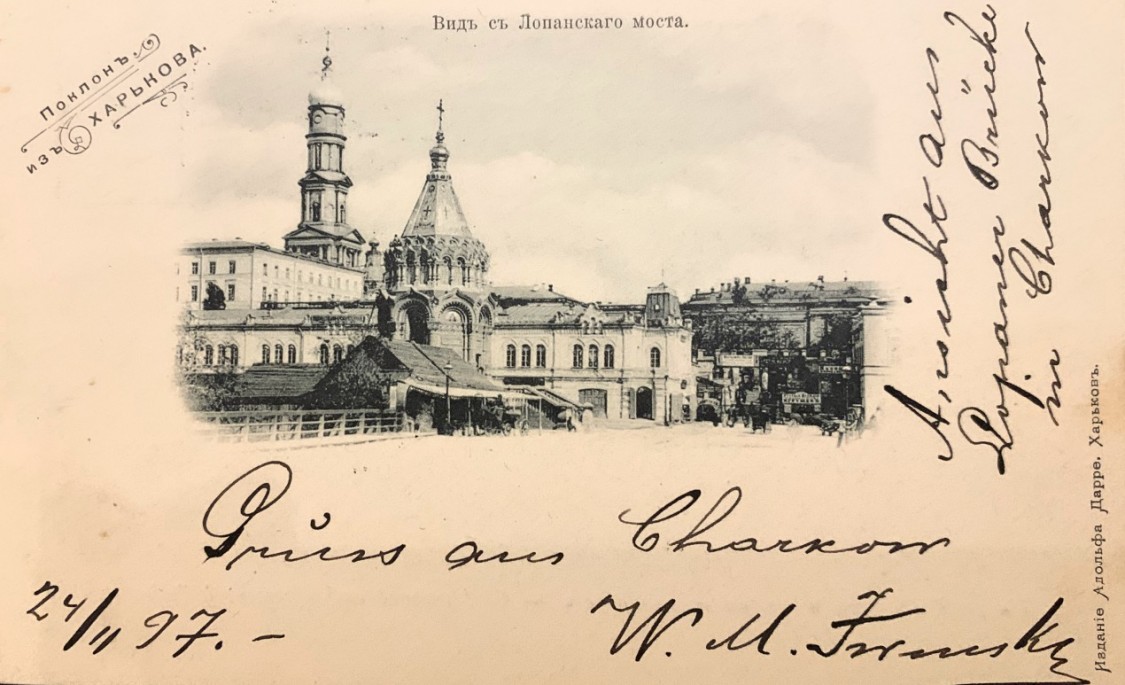 Видъ съ Лопанскаго моста.
Поклонъ
изъ ХАРЬКОВА.
Ansicht aus
Lopaner Brücke
in Charkow
Gruss aus Charkow
24/11 97. –
W. M.
Изданіе Адольфа Дарре. Харьковъ.